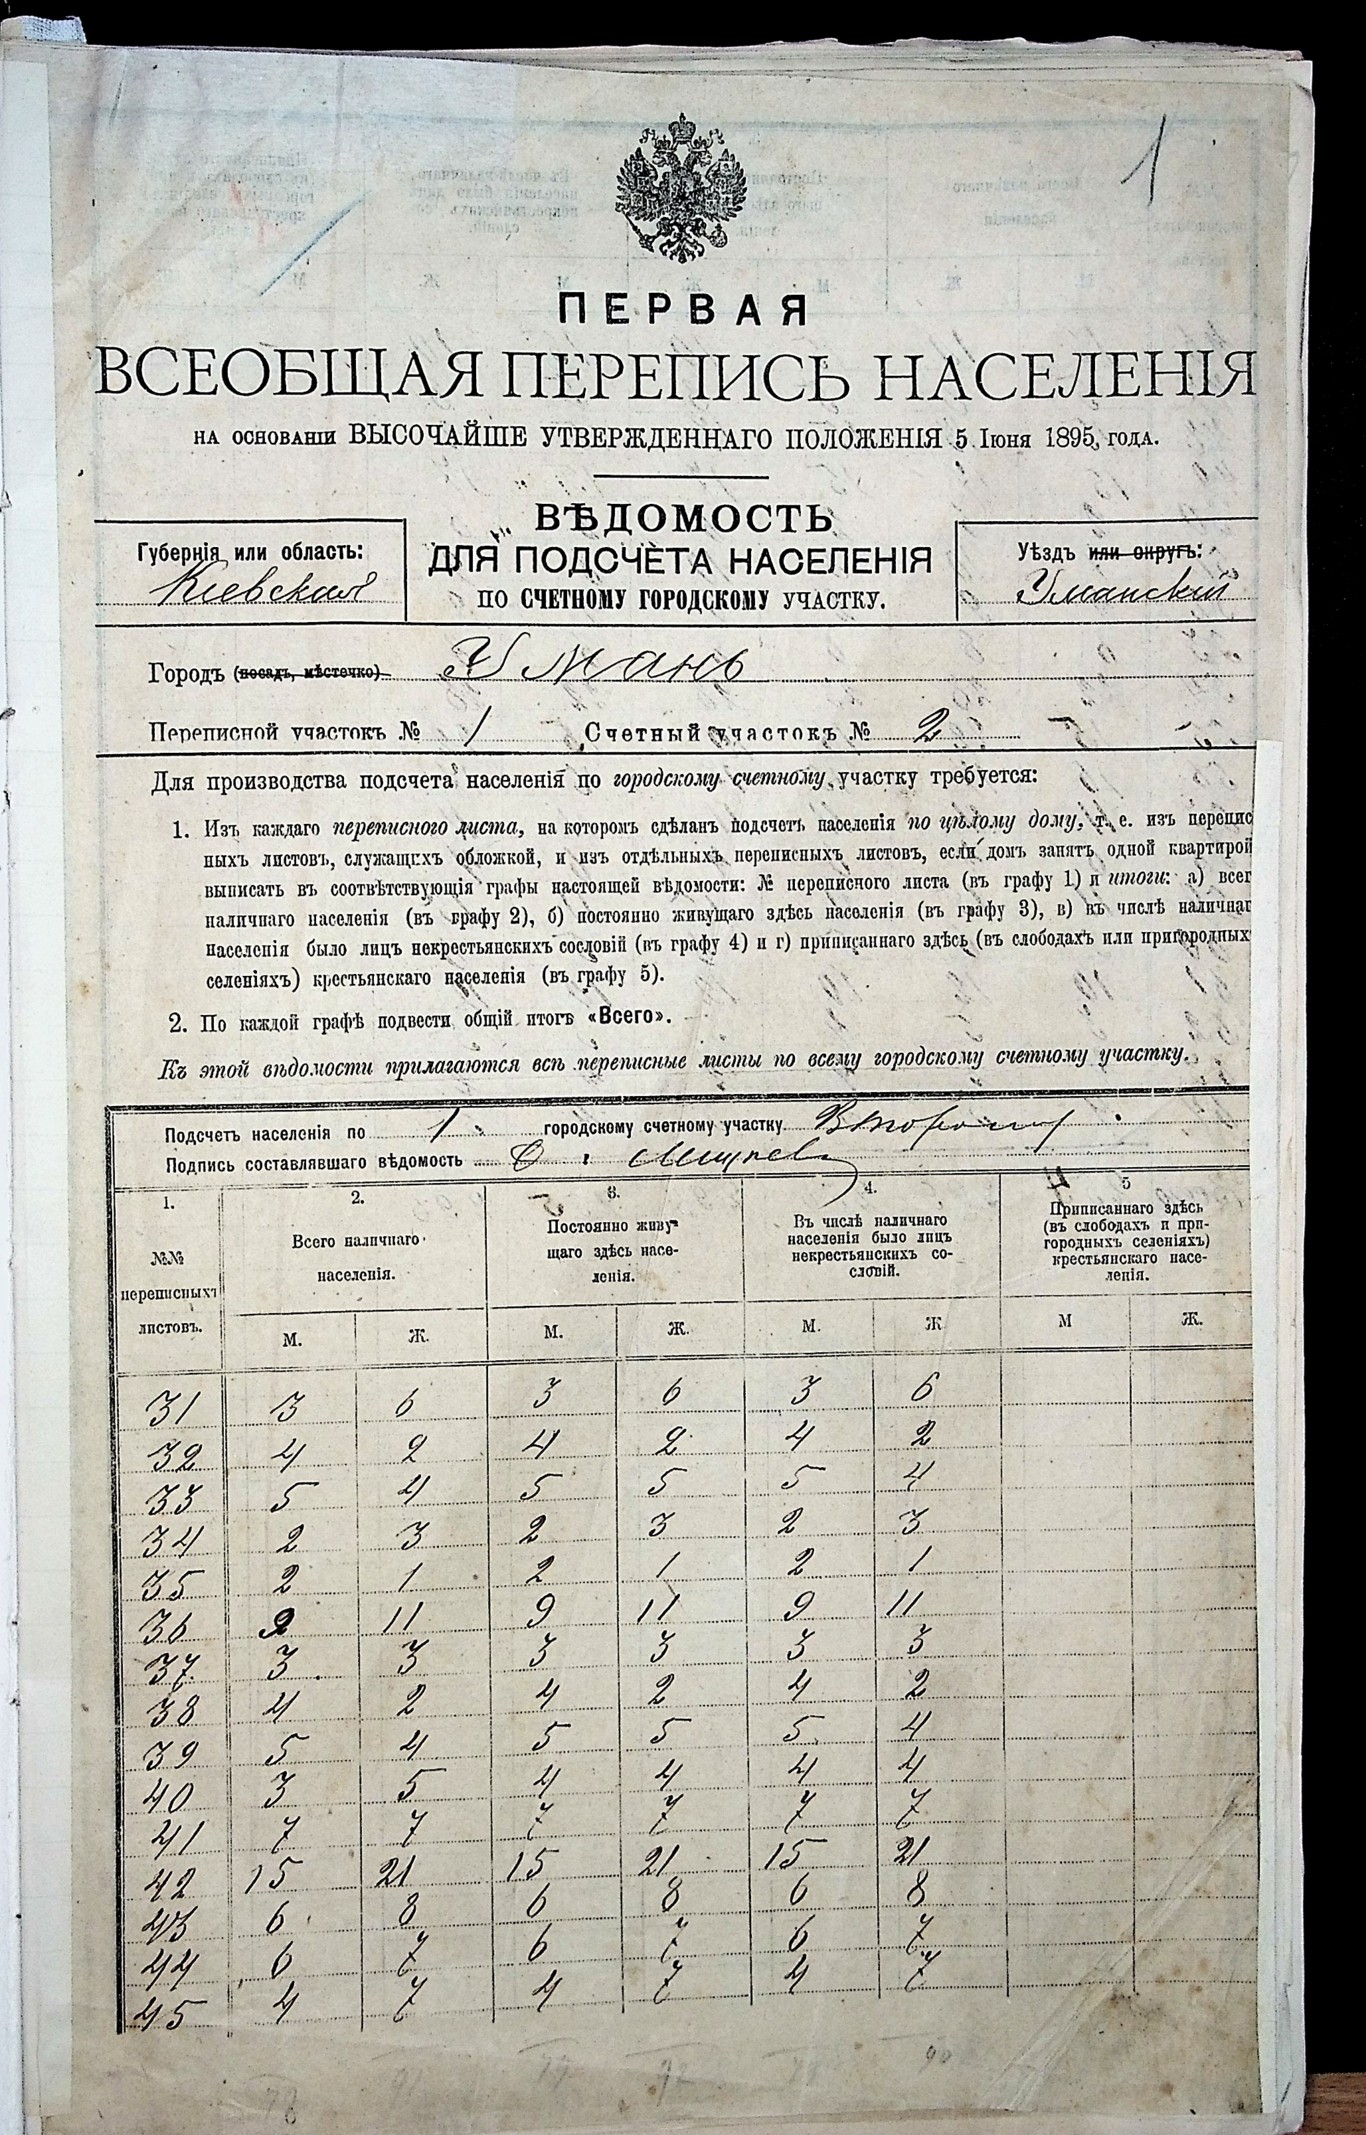 1
ПЕРВАЯ
ВСЕОБЩАЯ ПЕРЕПИСЬ НАСЕЛЕНІЯ
НА ОСНОВАНІИ ВЫСОЧАЙШЕ УТВЕРЖДЕННАГО ПОЛОЖЕНІЯ 5 Іюня 1895 ГОДА.
ВѢДОМОСТЬ
ДЛЯ ПОДСЧЕТА НАСЕЛЕНІЯ
ПО СЧЕТНОМУ ГОРОДСКОМУ УЧАСТКУ.
Губернія или область:
Кіевская
Уѣздъ или округъ:
Уманскій
Городъ (посадъ, мѣстечко) Умань
Переписной участокъ № 1 Счетный участокъ № 2
Для производства подсчета населенія по городскому счетному участку требуется:
1. Изъ каждаго переписного листа, на которомъ сдѣланъ подсчетъ населенія по цѣлому дому, т. е. изъ перепис
ныхъ листовъ, служащихъ обложкой, и изъ отдѣльныхъ переписныхъ листовъ, если домъ занятъ одной квартирой
выписать въ соотвѣтствующія графы настоящей вѣдомости: № переписного листа (въ графу 1) и итоги: а) всег
наличнаго населенія (въ графу 2), б) постоянно живущаго здѣсь населенія (въ графу 3), в) въ числѣ наличнаг
населенія было лицъ некрестьянскихъ сословій (въ графу 4) и г) приписаннаго здѣсь (въ слободахъ или пригородныхъ
селеніяхъ) крестьянскаго населенія (въ графу 5).
2. По каждой графѣ подвести общій итогъ «Всего».
Къ этой вѣдомости прилагаются всѣ переписные листы по всему городскому счетному участку.
Подсчетъ населенія по 1 городскому счетному участку Второму
Подпись составлявшаго вѣдомость
1. 2. 3. 4. 5
№№ переписныхъ листовъ.
Всего наличнаго населенія.
Постоянно живущаго здѣсь населенія.
Въ числѣ наличнаго населенія было лицъ некрестьянскихъ сословій.
Приписаннаго здѣсь (въ слободахъ и пригородныхъ селеніяхъ) крестьянскаго населенія.
М. Ж. М. Ж. М. Ж М Ж.
31 3 6 3 6 3 6
32 4 2 4 2 4 2
33 5 4 5 5 5 4
34 2 3 2 3 2 3
35 2 1 2 1 2 1
36 9 11 9 11 9 11
37 3 3 3 3 3 3
38 4 2 4 2 4 2
39 5 4 5 5 5 4
40 3 5 4 4 4 4
41 7 7 7 7 7 7
42 15 21 15 21 15 21
43 6 8 6 8 6 8
44 6 7 6 7 6 7
45 4 7 4 7 4 7
78 91 79 92 79 90